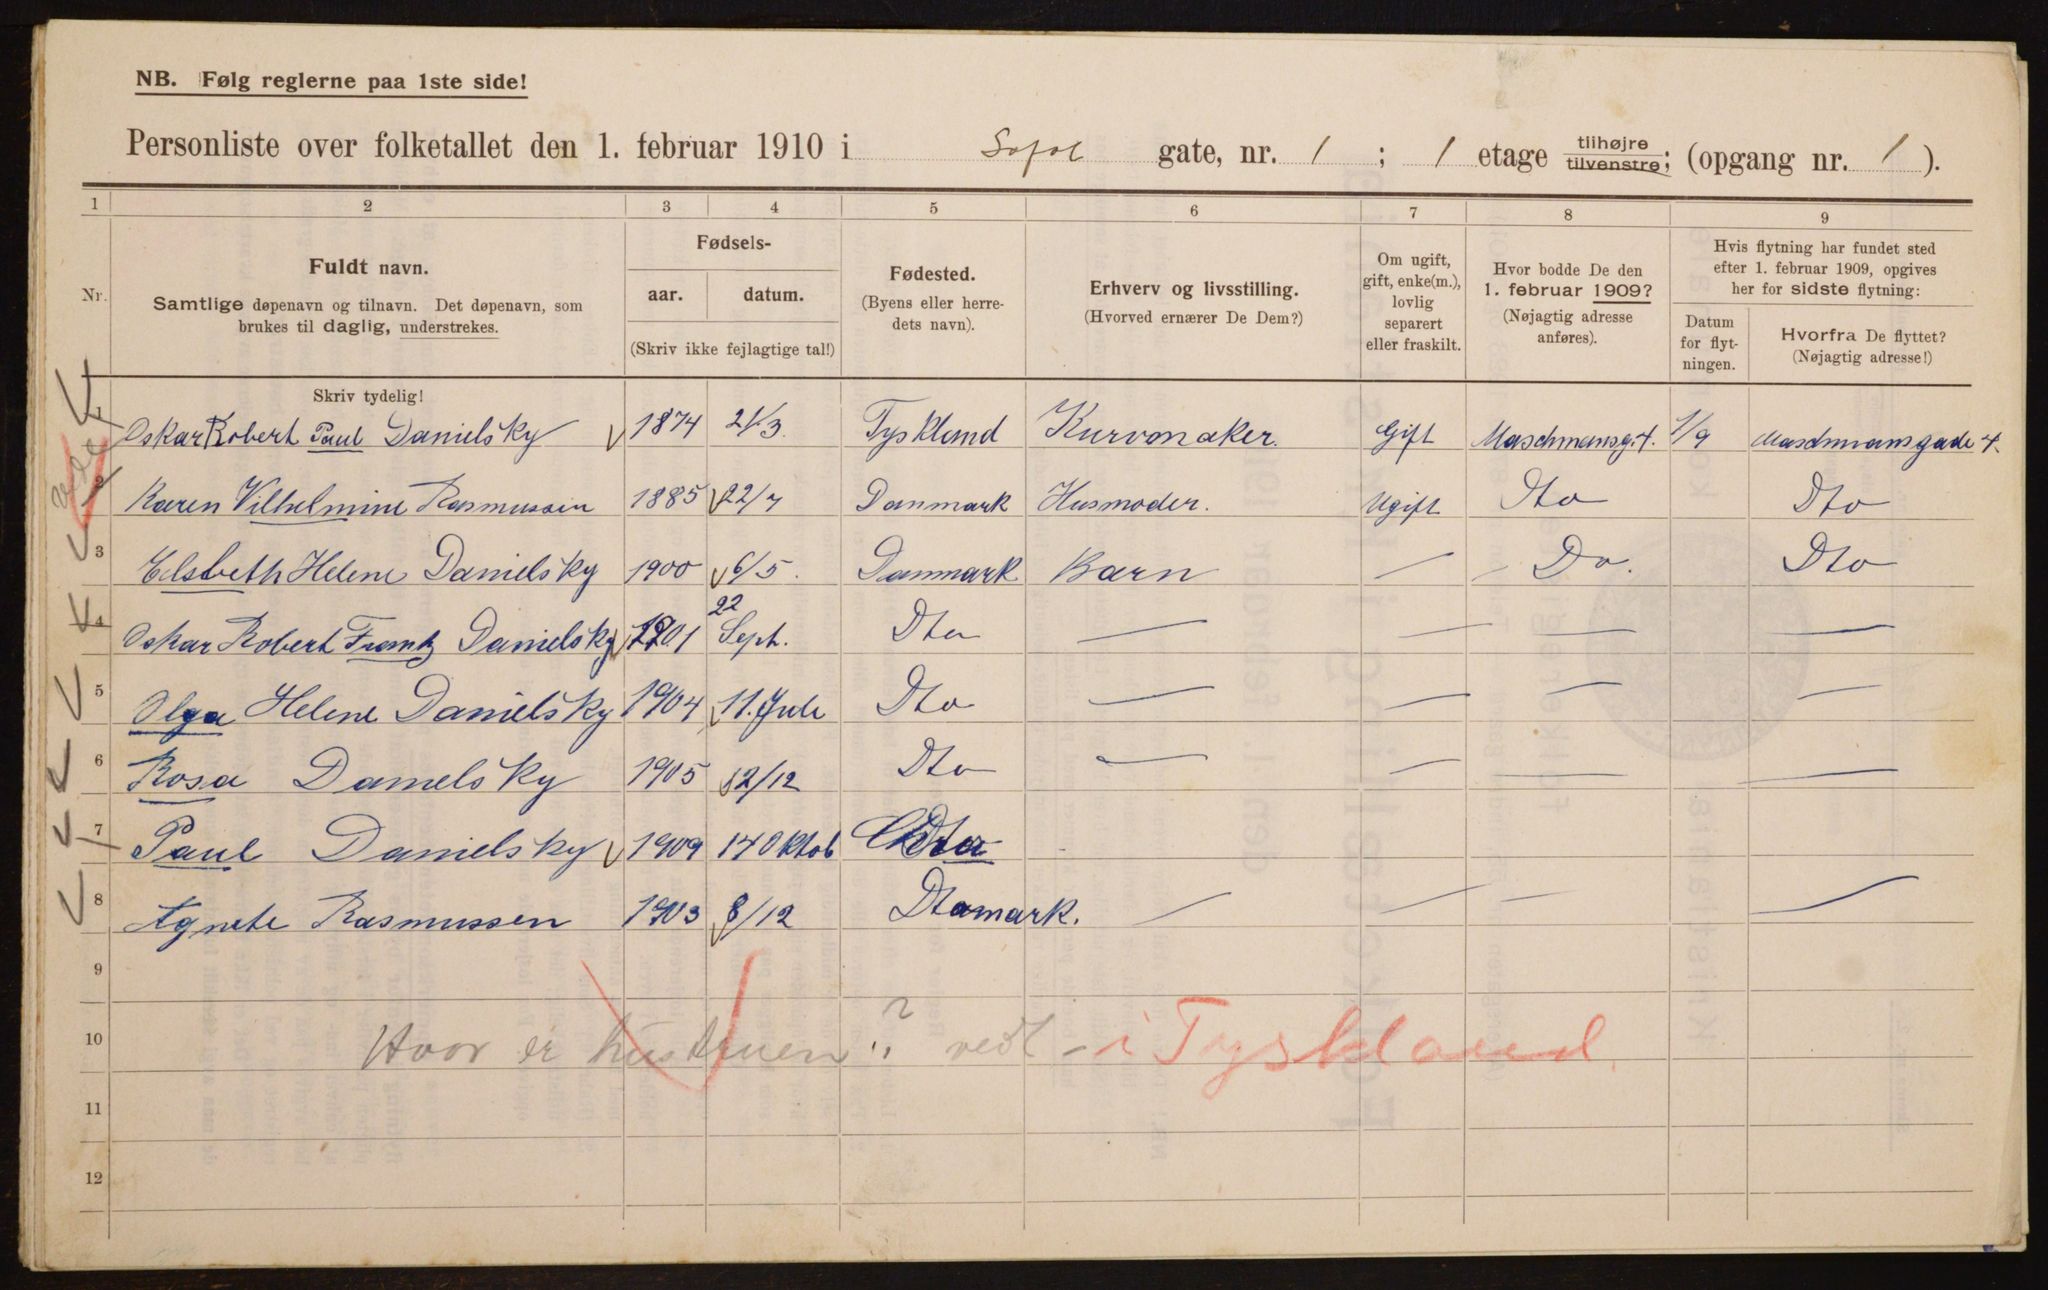 NB. Følg reglerne paa 1ste side!
Personliste over folketallet den 1. februar 1910 i Sofol gate, nr. 1 ; 1 etage tilhøjre tilvenstre; (opgang nr. 1 ).
1 2 3 4 5 6 7 8 9
Nr.
Fuldt navn.
Samtlige døpenavn og tilnavn. Det døpenavn, som
brukes til daglig, understrekes.
Fødsels-
aar. datum.
(Skriv ikke fejlagtige tal!)
Fødested.
(Byens eller herre-
dets navn).
Erhverv og livsstilling.
(Hvorved ernærer De Dem?)
Om ugift,
gift, enke(m.),
lovlig
separert
eller fraskilt.
Hvor bodde De den
1. februar 1909?
(Nøjagtig adresse
anføres).
Hvis flytning har fundet sted
efter 1. februar 1909, opgives
her for sidste flytning:
Datum
for flyt-
ningen.
Hvorfra De flyttet?
(Nøjagtig adresse!)
Skriv tydelig!
Oskar Robert Paul Danielsky 1874 21/3. Tyskland Kurvmaker. Gift Maschmansg. 4. 1/9 Maschmansgade 4.
2 Karen Vilhelmine Rasmussen 1885 22/7 Danmark Husmoder. Ugift Dto Dto
3 Elsbeth Helene Danielsky 1900 6/5. Danmark Barn — Do. Dto
4 Oskar Robert Frantz Danielsky 1901 22 Sept. Dto — — — —
5 Olga Helene Danielsky 1904 11. Juli Dto — — — —
6 Rosa Danielsky 1905 12/12 Dto — — — —
7 Paul Danielsky 1909 14 Oktob Dto
8 Agnete Rasmussen 1903 8/12 Dtomark. — — — —
9
10 Hvor er hustruen? vedl - i Tyskland
11
12